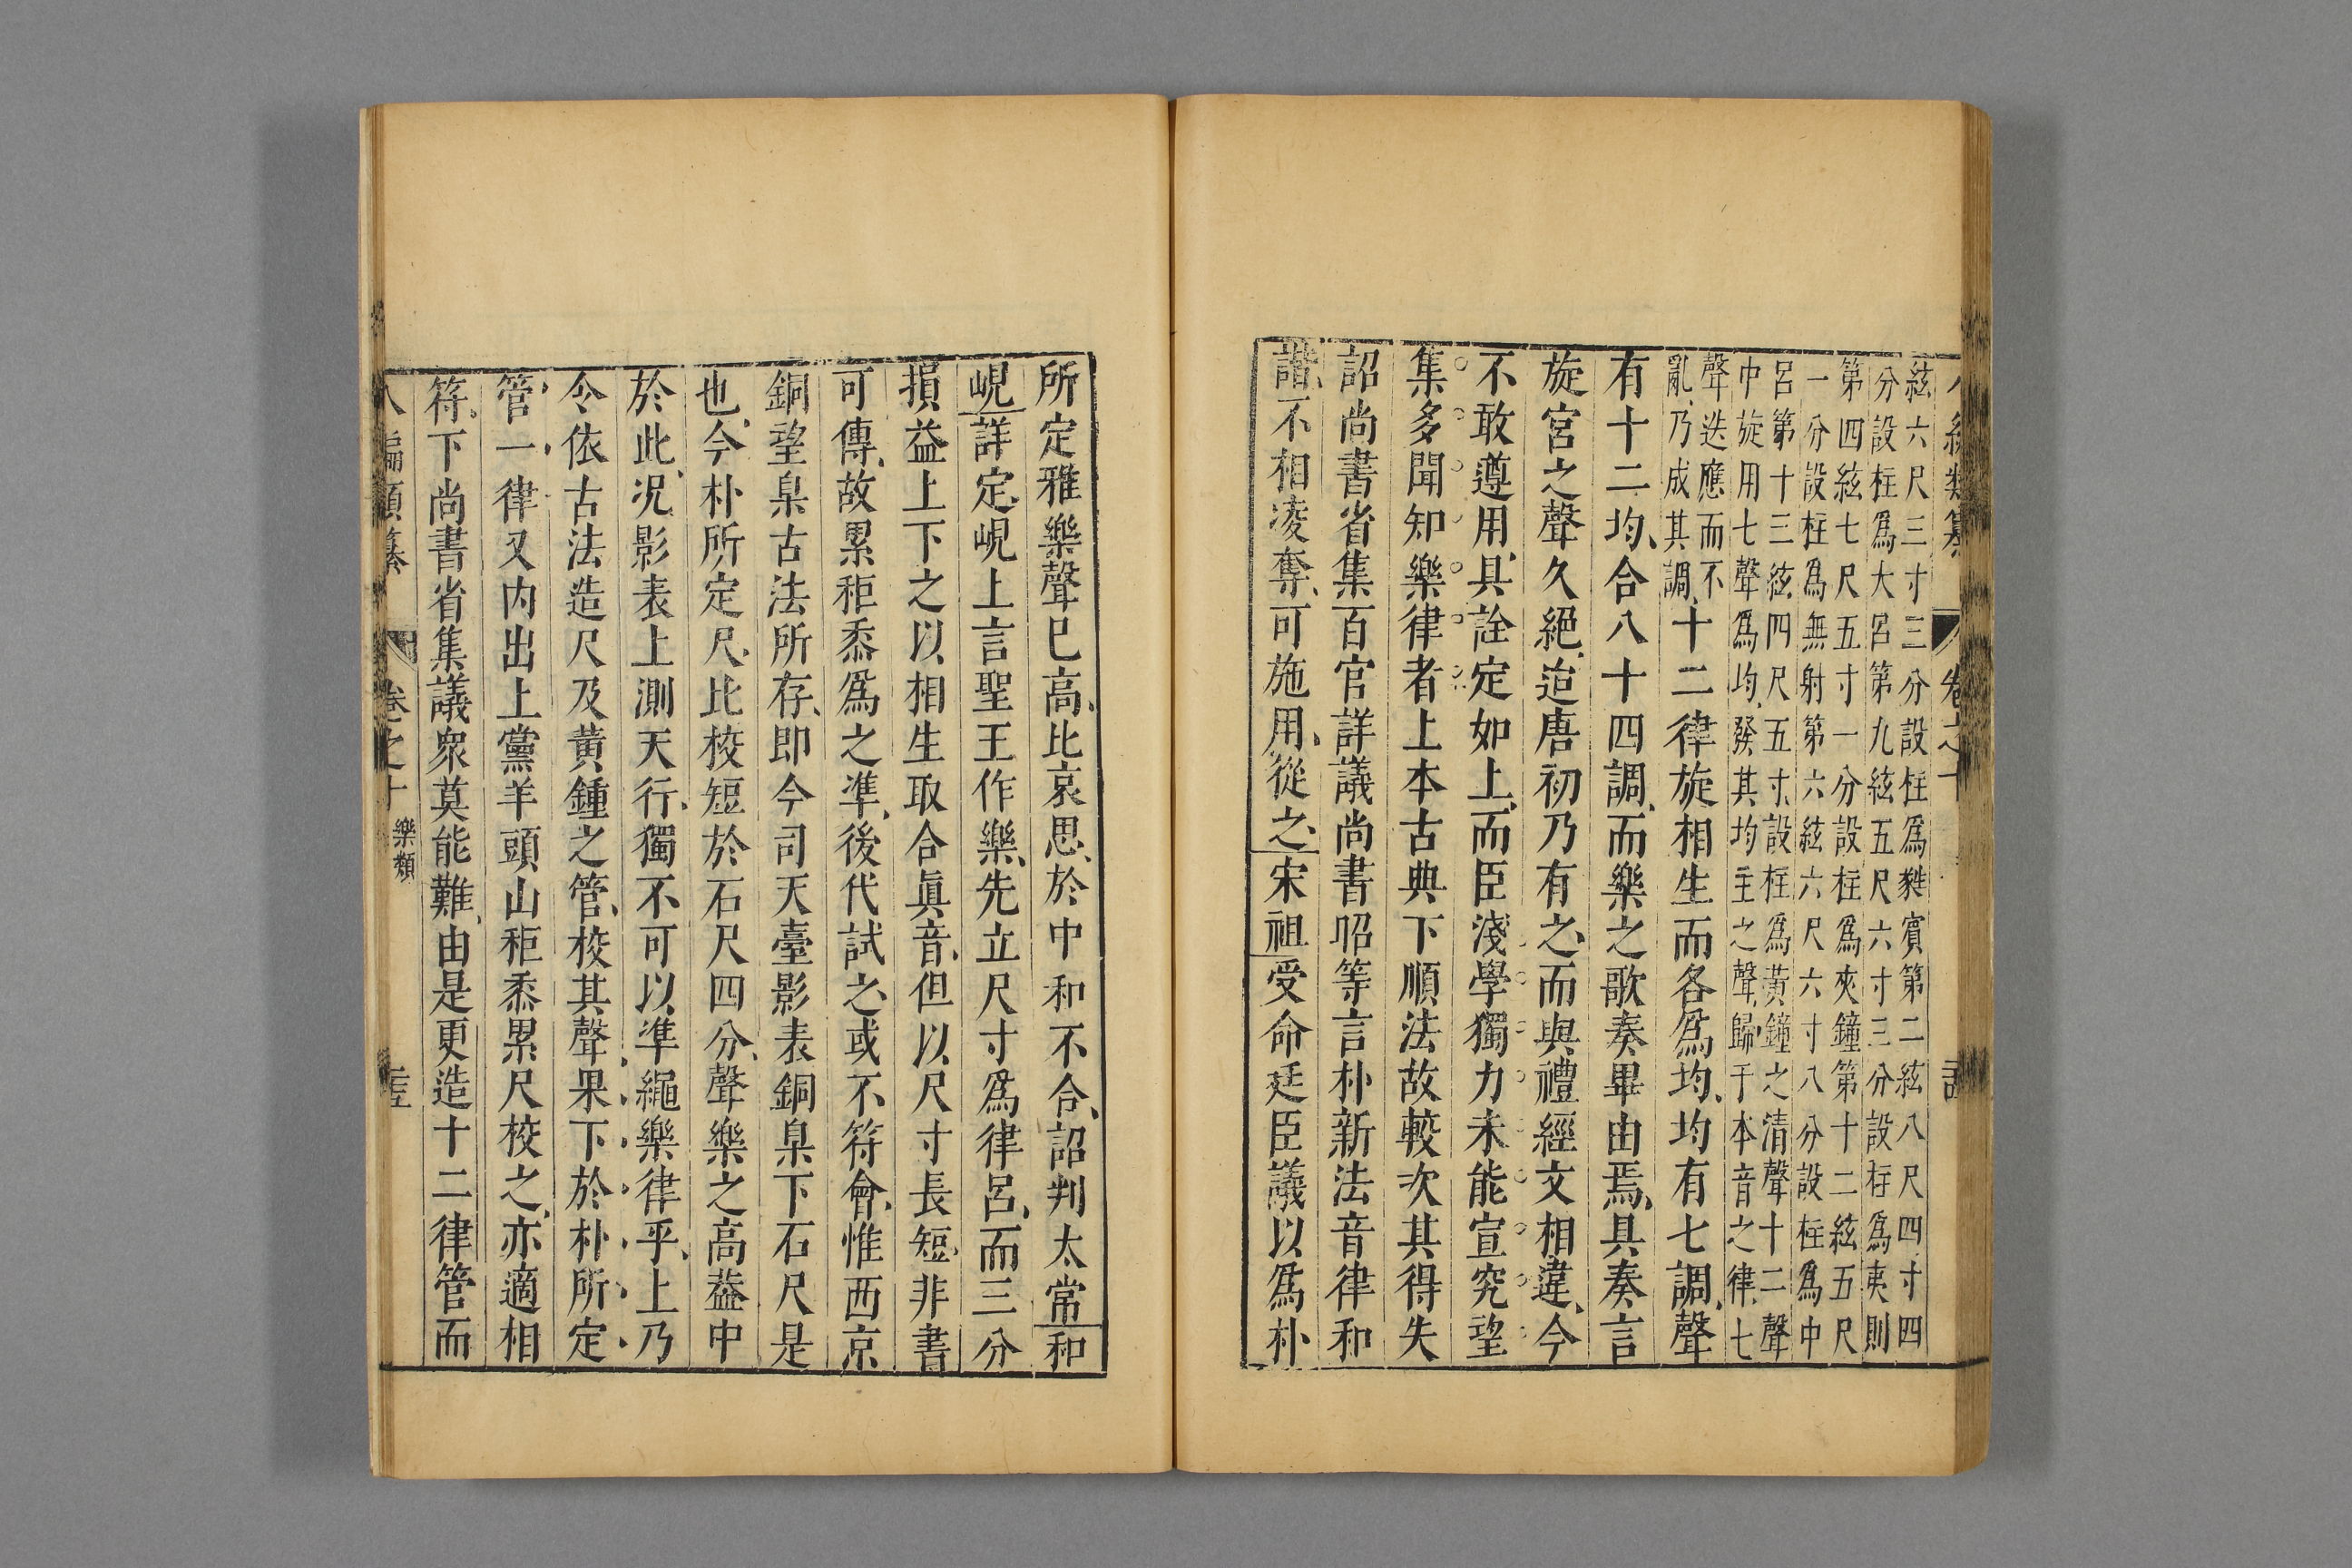 八編類纂 卷之十
絃六尺三寸三分設柱爲蕤賓第二絃八尺四寸四
分設柱爲大呂第九絃五尺六寸三分設柱爲夷則
第四絃七尺五寸一分設柱爲夾鐘第十二絃五尺
一分設柱爲無射第六絃六尺六寸八分設柱爲中
呂第十三絃四尺五寸設柱爲黃鐘之清聲十二聲
中旋用七聲爲均發其均主之聲歸于本音之律七
聲迭應而不
亂乃成其調十二律旋相生而各爲均均有七調聲
有十二均合八十四調而樂之歌奏畢由焉具奏言
旋宮之聲久絕迨唐初乃有之而與禮經文相違今
不敢遵用具詮定如上而臣淺學獨力未能宣究望
集多聞知樂律者上本古典下順法故較次其得失
詔尚書省集百官詳議尚書昭等言朴新法音律和
諧不相凌奪可施用從之宋祖受命廷臣議以爲朴
所定雅樂聲巳高比哀思於中和不合詔判太常和
峴詳定峴上言聖王作樂先立尺寸爲律呂而三分
損益上下之以相生取合眞音但以尺寸長短非書
可傳故累秬黍爲之準後代試之或不符會惟西京
銅望臬古法所存即今司天臺影表銅臬下石尺是
也今朴所定尺比校短於石尺四分聲樂之高葢中
於此况影表上測天行獨不可以準繩樂律乎上乃
令依古法造尺及黃鍾之管校其聲果下於朴所定
管一律又內出上黨羊頭山秬黍累尺校之亦適相
符下尚書省集議衆莫能難由是更造十二律管而
八編類纂 卷之十 樂類